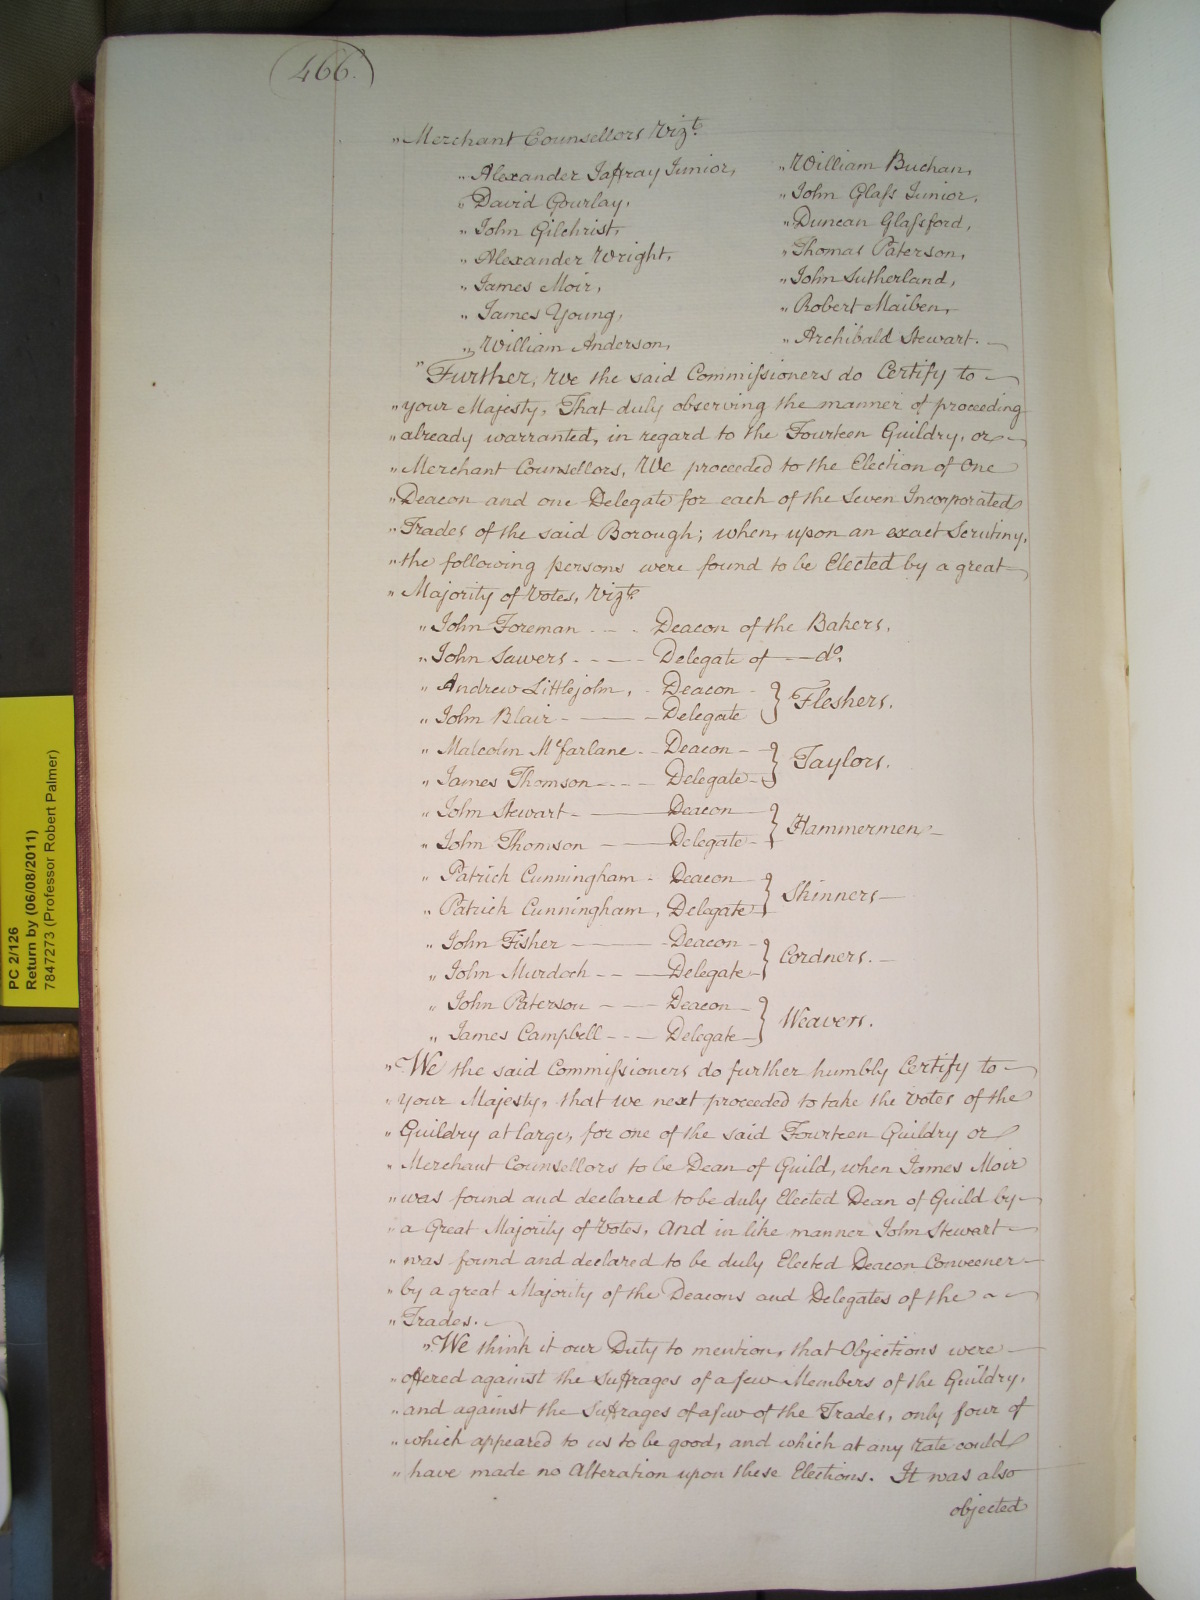 466.
„ Merchant Counsellors Vizt
„ Alexander Jaffray Junior,
„ David Gourlay,
„ John Gilchrist,
„ Alexander Wright,
„ James Moir,
„ James Young,
„ William Anderson,
„ William Buchan,
„ John Glaſs Junior,
„ Duncan Glaſsford,
„ Thomas Paterson,
„ John Sutherland,
„ Robert Maiben,
„ Archibald Stewart.
„ Further, We the said Commiſsioners do Certify to
„ your Majesty, That duly observing the manner of proceeding
„ already warranted, in regard to the Fourteen Guildry, or
„ Merchant Counsellors, We proceeded to the Election of One
„ Deacon and one Delegate for each of the Seven Incorporated
„ Trades of the said Borough; when, upon an exact Scrutiny,
„ the following persons were found to be Elected by a great
„ Majority of Votes, Vizt
„ John Foreman - - - Deacon of the Bakers.
„ John Sawers - - - Delegate of — do.
„ Andrew Littlejohn, - Deacon - } Fleshers.
„ John Blair - — - Delegate
„ Malcolm McFarlane - - Deacon - } Taylors.
„ James Thomson - - - Delegate
„ John Stewart - — Deacon } Hammermen
„ John Thomson - — Delegate
„ Patrick Cunningham - Deacon } Skinners
„ Patrick Cunningham, Delegate
„ John Fisher — - Deacon - } Cordners.
„ John Murdoch - - — Delegate
„ John Paterson - - - Deacon } Weavers.
„ James Campbell - - - Delegate
„ We the said Commiſsioners do further humbly Certify to
„ your Majesty, that we next proceeded to take the Votes of the
„ Guildry at large, for one of the said Fourteen Guildry or
„ Merchant Counsellors to be Dean of Guild, when James Moir
„ was found and declared to be duly Elected Dean of Guild by
„ a Great Majority of Votes, And in like manner John Stewart
„ was found and declared to be duly Elected Deacon Conveener
„ by a great Majority of the Deacons and Delegates of the
„ Trades.
„ We think it our Duty to mention, that Objections were
„ offered against the Suffrages of a few Members of the Guildry,
„ and against the Suffrages of a few of the Trades, only four of
„ which appeared to us to be good, and which at any Rate could
„ have made no Alteration upon these Elections. It was also
objected
PC 2/126
Return by (06/08/2011)
7847273 (Professor Robert Palmer)